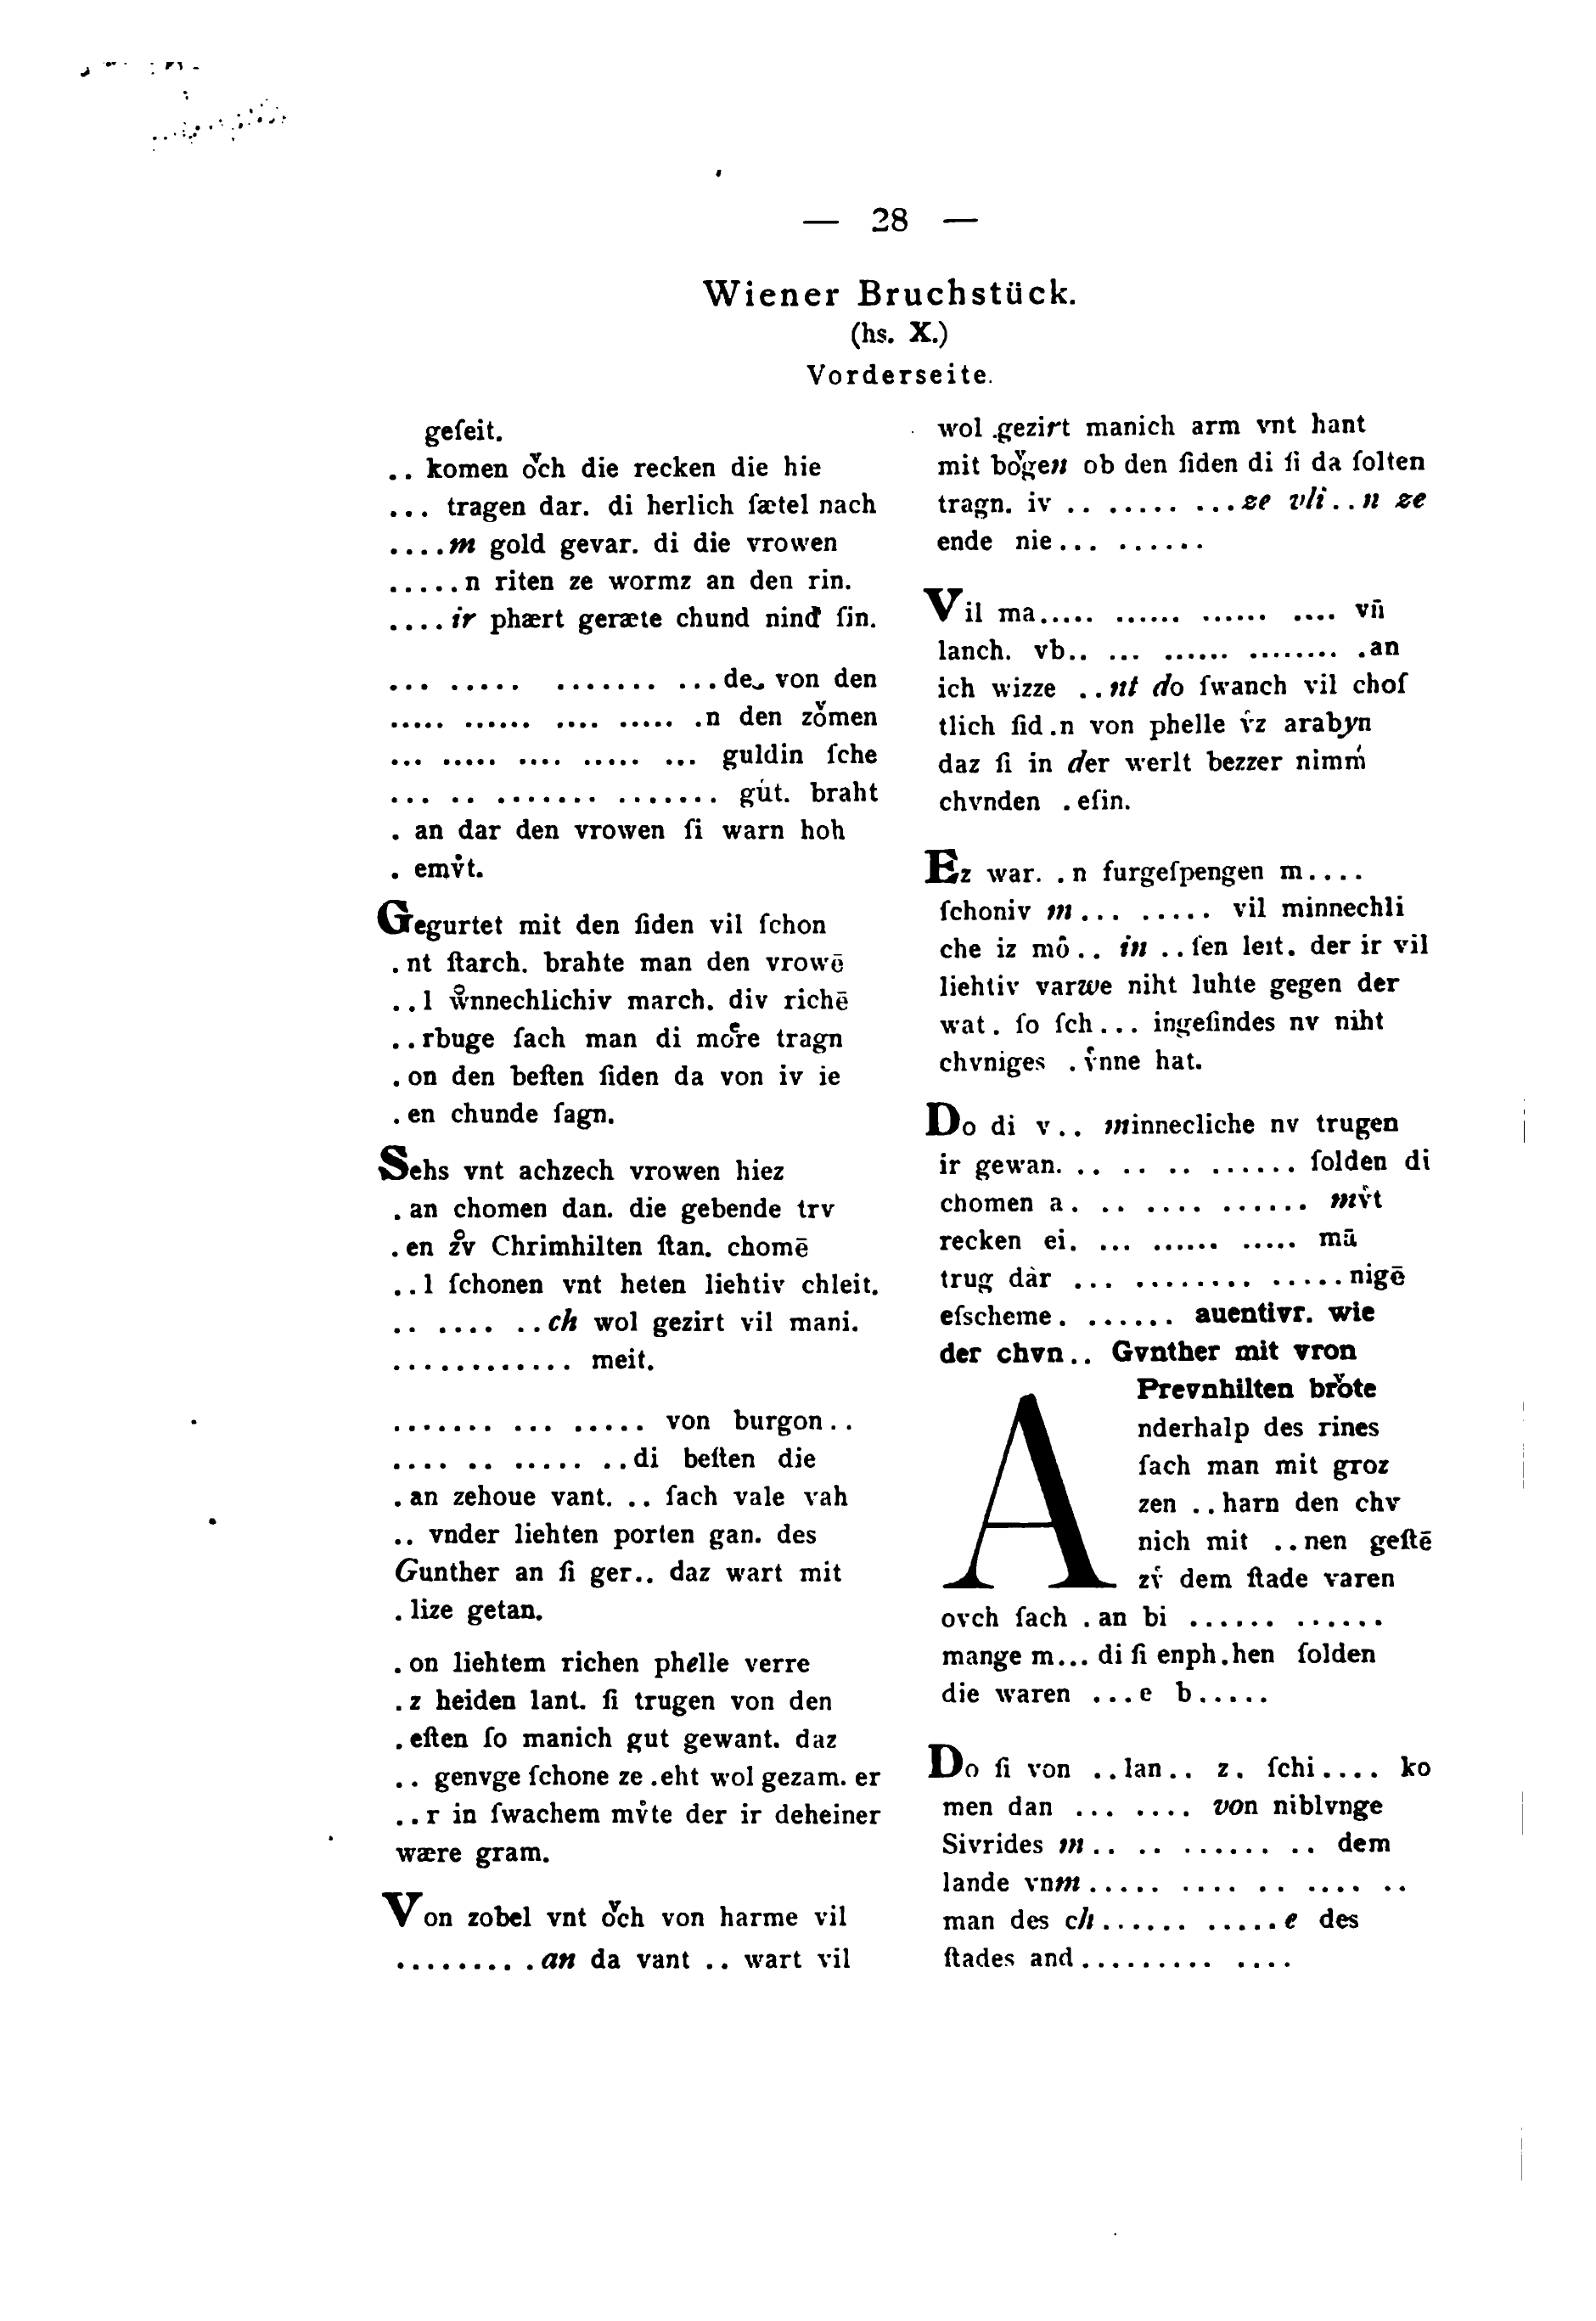 — 28 —
Wiener Bruchstück.
(hs. X.)
Vorderseite.
geſeit.
.. komen oͮch die recken die hie
... tragen dar. di herlich ſætel nach
....m gold gevar. di die vrowen
.....n riten ze wormz an den rin.
....ir phært geræte chund nind' ſin.
... ..... ....... ...de. von den
..... ...... .... ..... .n den zoͮmen
... ..... .... ..... ... guldin ſche
... .. ....... ....... gút. braht
. an dar den vrowen ſi warn hoh
. emv̊t.
Gegurtet mit den ſiden vil ſchon
.nt ſtarch. brahte man den vrowē
..l ẘnnechlichiv march. div richē
..rbuge ſach man di moͤre tragn
.on den beſten ſiden da von iv ie
.en chunde ſagn.
Sehs vnt achzech vrowen hiez
.an chomen dan. die gebende trv
.en z̊v Chrimhilten ſtan. chomē
..l ſchonen vnt heten liehtiv chleit.
.. .... ..ch wol gezirt vil mani.
............ meit.
....... ... ..... von burgon..
.... .. ..... ..di beſten die
.an zehoue vant. .. ſach vale vah
.. vnder liehten porten gan. des
Gunther an ſi ger.. daz wart mit
.lize getan.
.on liehtem richen phelle verre
.z heiden lant. ſi trugen von den
.eſten ſo manich gut gewant. daz
.. genvge ſchone ze .eht wol gezam. er
..r in ſwachem mv̊te der ir deheiner
wære gram.
Von zobel vnt oͮch von harme vil
..........an da vant .. wart vil
wol .gezirt manich arm vnt hant
mit boͮgen ob den ſiden di ſi da ſolten
tragn. iv .. ...... ...ze vli..n ze
ende nie... ......
Vil ma..... ...... ...... .... vn̄
lanch. vb.. ... ...... ........ .an
ich wizze ..nt do ſwanch vil choſ
tlich ſid.n von phelle v̓z arabyn
daz ſi in der werlt bezzer nimḿ
chvnden .eſin.
Ez war. .n furgeſpengen m....
ſchoniv m... ..... vil minnechli
che iz mô.. in ..ſen leit. der ir vil
liehtiv varwe niht luhte gegen der
wat. ſo ſch... ingeſindes nv niht
chvniges .v̓nne hat.
Do di v.. minnecliche nv trugen
ir gewan. .. .. .. ...... ſolden di
chomen a. .. .... ...... mv̓t
recken ei. ... ...... ..... mā
trug dàr ... ........ .....nigē
efscheme. ...... auentivr. wie
der chvn.. Gvnther mit vron
Prevnhilten broͮte
Anderhalp des rines
ſach man mit groz
zen ..harn den chv
nich mit ..nen geſtē
zv̓ dem ſtade varen
ovch ſach .an bi ...... ......
mange m... di ſi enph.hen ſolden
die waren ...e b.....
Do ſi von ..lan.. z. ſchi.... ko
men dan ... .... von niblvnge
Sivrides m.. .. ....... .. dem
lande vnm..... .... .. .... ..
man des ch...... .....e des
ſtades and......... ....